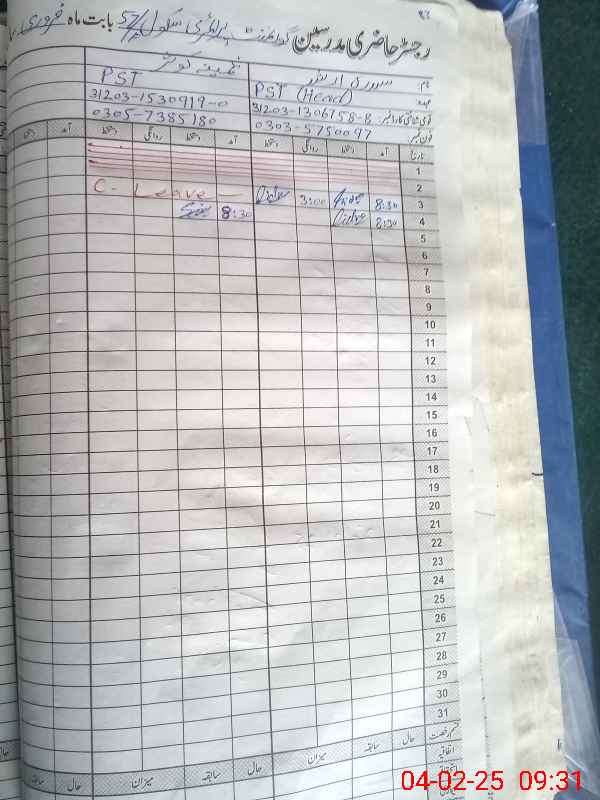 رجسٹر حاضری مدرسین گورنمنٹ پرائمری سکول 57/ بابت ماہ فروری
نام:
عہدہ: PST (Head) PST
قومی شناختی کارڈ نمبر: 31203-1306758-8 31203-1530919-0
فون نمبر: 0303-5750097 0305-7385180
تاریخ آمد دستخط روانگی دستخط آمد دستخط روانگی دستخط آمد دستخط
1
2
3 8:30 3:00 C- Leave -
4 8:30 8:30
5
6
7
8
9
10
11
12
13
14
15
16
17
18
19
20
21
22
23
24
25
26
27
28
29
30
31
قسم رخصت حال سابقہ میزان حال سابقہ میزان حال سابقہ
اتفاقیہ
04-02-25 09:31